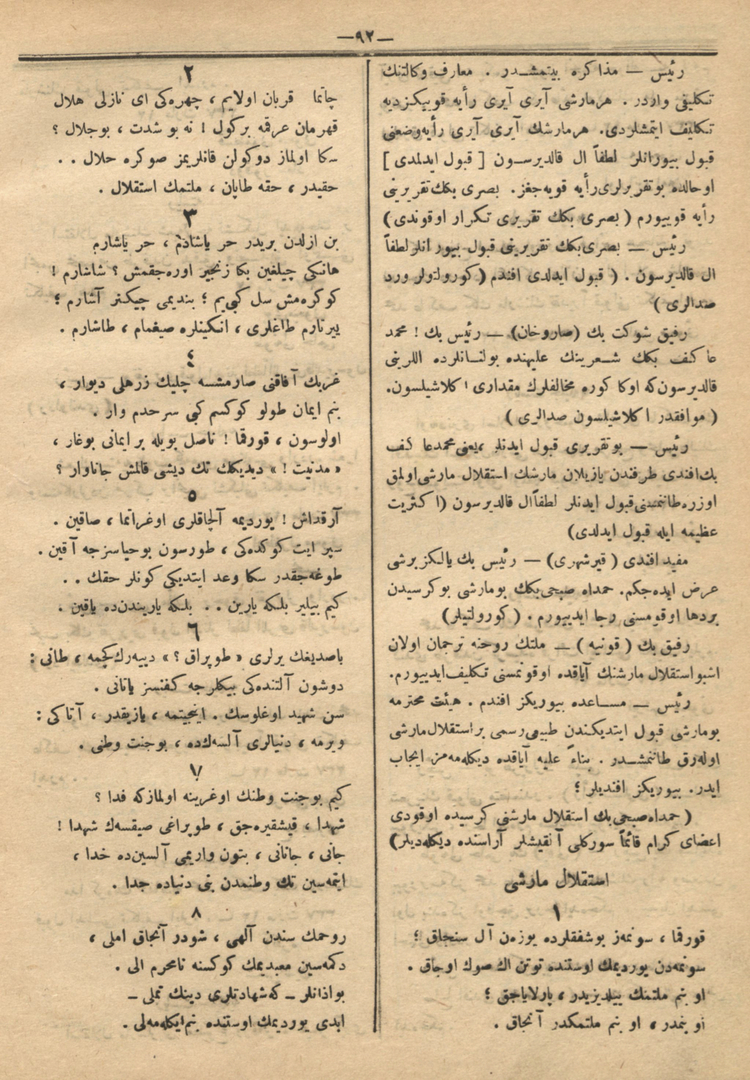 —٩٢—
رئیس — مذاکره بیتمشدر . معارف وکالتنك
تکلیفی واردر . هرمارشی آیری آیری رأیه قویبکزدیه
تکلیف ایتمشلردی. هرمارشك آیری آیری رأیه‌وضعنی
قبول بیورانلر لطفاً ال قالدیرسون [ قبول ایدلمدی ]
اوحالده بوتقریرلری رأیه قویه‌جغز. بصری بکك تقریرینی
رأیه قوییورم ( بصری بکك تقریری تکرار اوقوندی )
رئیس — بصری‌بکك تقریرینی قبول بیورانلر لطفاً
ال قالدیرسون . ( قبول ایدلدی افندم ( کورولتولر ورد
صدالری )
رفیق شوکت بك (صاروخان) — رئیس بك ! محمد
عاکف بکك شعرینك علیهنده بولنانلرده اللرینی
قالدیرسون‌که اوکا کوره مخالفلرك مقداری آکلاشیلسون.
( موافقدر آکلاشیلسون صدالری )
رئیس — بوتقریری قبول ایدنلر ،یعنی محمدعا کف
بك‌افندی طرفندن یازیلان مارشك استقلال مارشی‌اولمق
اوزره‌طانتمسنی‌قبول ایدنلر لطفاًال قالدیرسون (اکثریت
عظیمه ایله قبول ایدلدی)
مفید افندی ( قیرشهری) — رئیس بك یالکزبرشی
عرض ایده‌جکم. حمداه صبحی‌بکك بومارشی بوکرسیدن
بردها اوقومسنی رجا ایدییورم . ( کورولتیلر)
رفیق بك ( قونیه ) — ملتك روحنه ترجمان اولان
اشبو استقلال مارشنك آیاقده اوقونمسنی تکلیف‌ایدییورم.
رئیس — مساعده بیوریکز افندم . هیئت محترمه
بومارشی قبول ایتدیکندن طبیعی رسمی بر استقلال‌مارشی
اوله‌رق طانتمشدر . بناءً علیه آیاقده دیکله‌مه‌مز ایجاب
ایدر. بیوریکز افندیلر ؛
( حمداه‌صبحی‌بك استقلال مارشنی کرسیده اوقودی
اعضای کرام قائماً سورکلی آلقیشلر آراسنده دیکله‌دیلر)
استقلال مارشی
۱
قورقما ، سونمه‌ز بوشفقلرده یوزه‌ن آل سنجاق ؛
سونمه‌دن یوردیمك اوستنده توتن اك صوك اوجاق .
او بنم ملتمك ییلدیزیدر ، پارلایاجق ؛
او بنمدر ، او بنم ملتمکدر آنجاق .
۲
چاتما قربان اولایم ، چهره‌کی ای نازلی هلال
قهرمان عرقمه برکول ! نه بو شدت ، بوجلال ؟
سکا اولماز دوکولن قانلریمز صوکره حلال . .
حقیدر ، حقه طاپان ، ملتمك استقلال .
۳
بن ازلدن بریدر حر یاشادم ، حر یاشارم
هانکی چیلغین بکا زنجیر اوره‌جقمش ؟ شاشارم !
کوکره‌مش سل کبی‌یم ؛ بندیمی چیکنر آشارم ؛
ییرتارم طاغلری ، انکینلره صیغمام ، طاشارم .
٤
غربك آفاقنی صارمشسه چلیك زرهلی دیوار ،
بنم ایمان طولو کوکسم کبی سرحدم وار .
اولوسون ، قورقما ! ناصل بویله بر ایمانی بوغار ،
« مدنیت ! » دیدیکك تك دیشی قالمش جاناوار ؟
٥
آرقداش ! یوردیمه آلچاقلری اوغراتما ، صاقین .
سپر ایت کوکده‌کی ، طورسون بوحیاسزجه آقین .
طوغه‌جقدر سکا وعد ایتدیکی کونلر حقك . .
کیم بیلیر بلکه یارین . . بلکه یاریندن‌ده یاقین .
٦
باصدیغك یرلری « طوپراق ؟ » دییه‌رك‌کچمه ، طانی :
دوشون آلتنده‌کی بیکلرجه کفنسز یاتانی .
سن شهید اوغلوسك . اینجیتمه ، یازیقدر ، آتاکی :
ویرمه ، دنیالری آلسه‌ك‌ده ، بوجنت وطنی .
۷
کیم بوجنت وطنك اوغرینه اولمازکه فدا ؟
شهدا ، فیشقیره‌جق ، طوپراغی صیقسه‌ك شهدا !
جانی ، جانانی ، بتون واریمی آلسین‌ده خدا ،
ایتمه‌سین تك وطنمدن بنی دنیاده جدا .
۸
روحمك سندن آلهی ، شودر آنجاق املی ،
دکمه‌سین معبدیمك کوکسنه نامحرم الی .
بواذانلر — که شهادتلری دینك تملی —
ابدی یوردیمك اوستنده بنم‌ایکله‌مه‌لی .